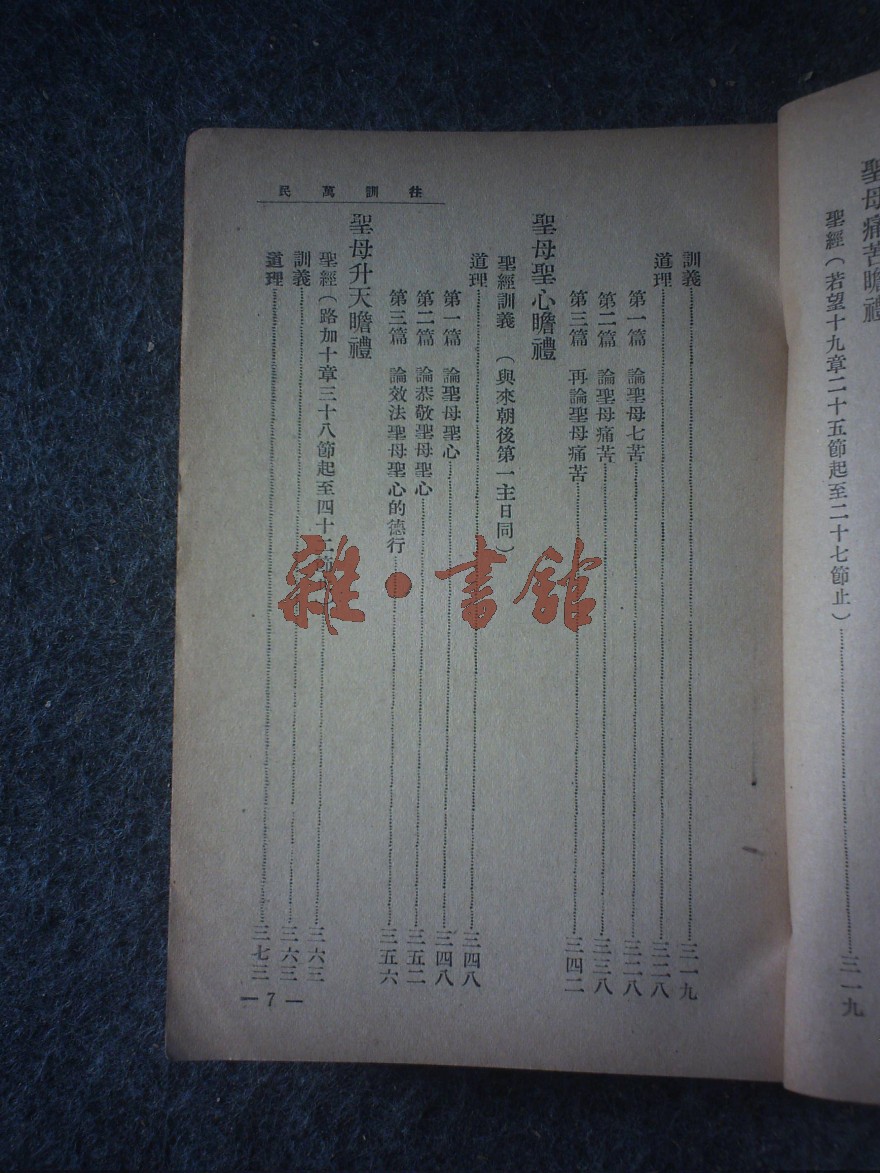 聖母痛苦瞻禮
聖經(若望十九章二十五節起至二十七節止)……三一九
往訓萬民
訓義……三一九
道理……三二八
第一篇 論聖母七苦……三二八
第二篇 論聖母痛苦……三三八
第三篇 再論聖母痛苦……三四二
聖母聖心瞻禮
聖經訓義 (與來朝後第一主日同)
道理……三四八
第一篇 論聖母聖心……三四八
第二篇 論恭敬聖母聖心……三五二
第三篇 論效法聖母聖心的德行……三五六
聖母升天瞻禮
聖經(路加十章三十八節起至四十二節……三六三
訓義……三六三
道理……三七三
— 7 —
雜·書館